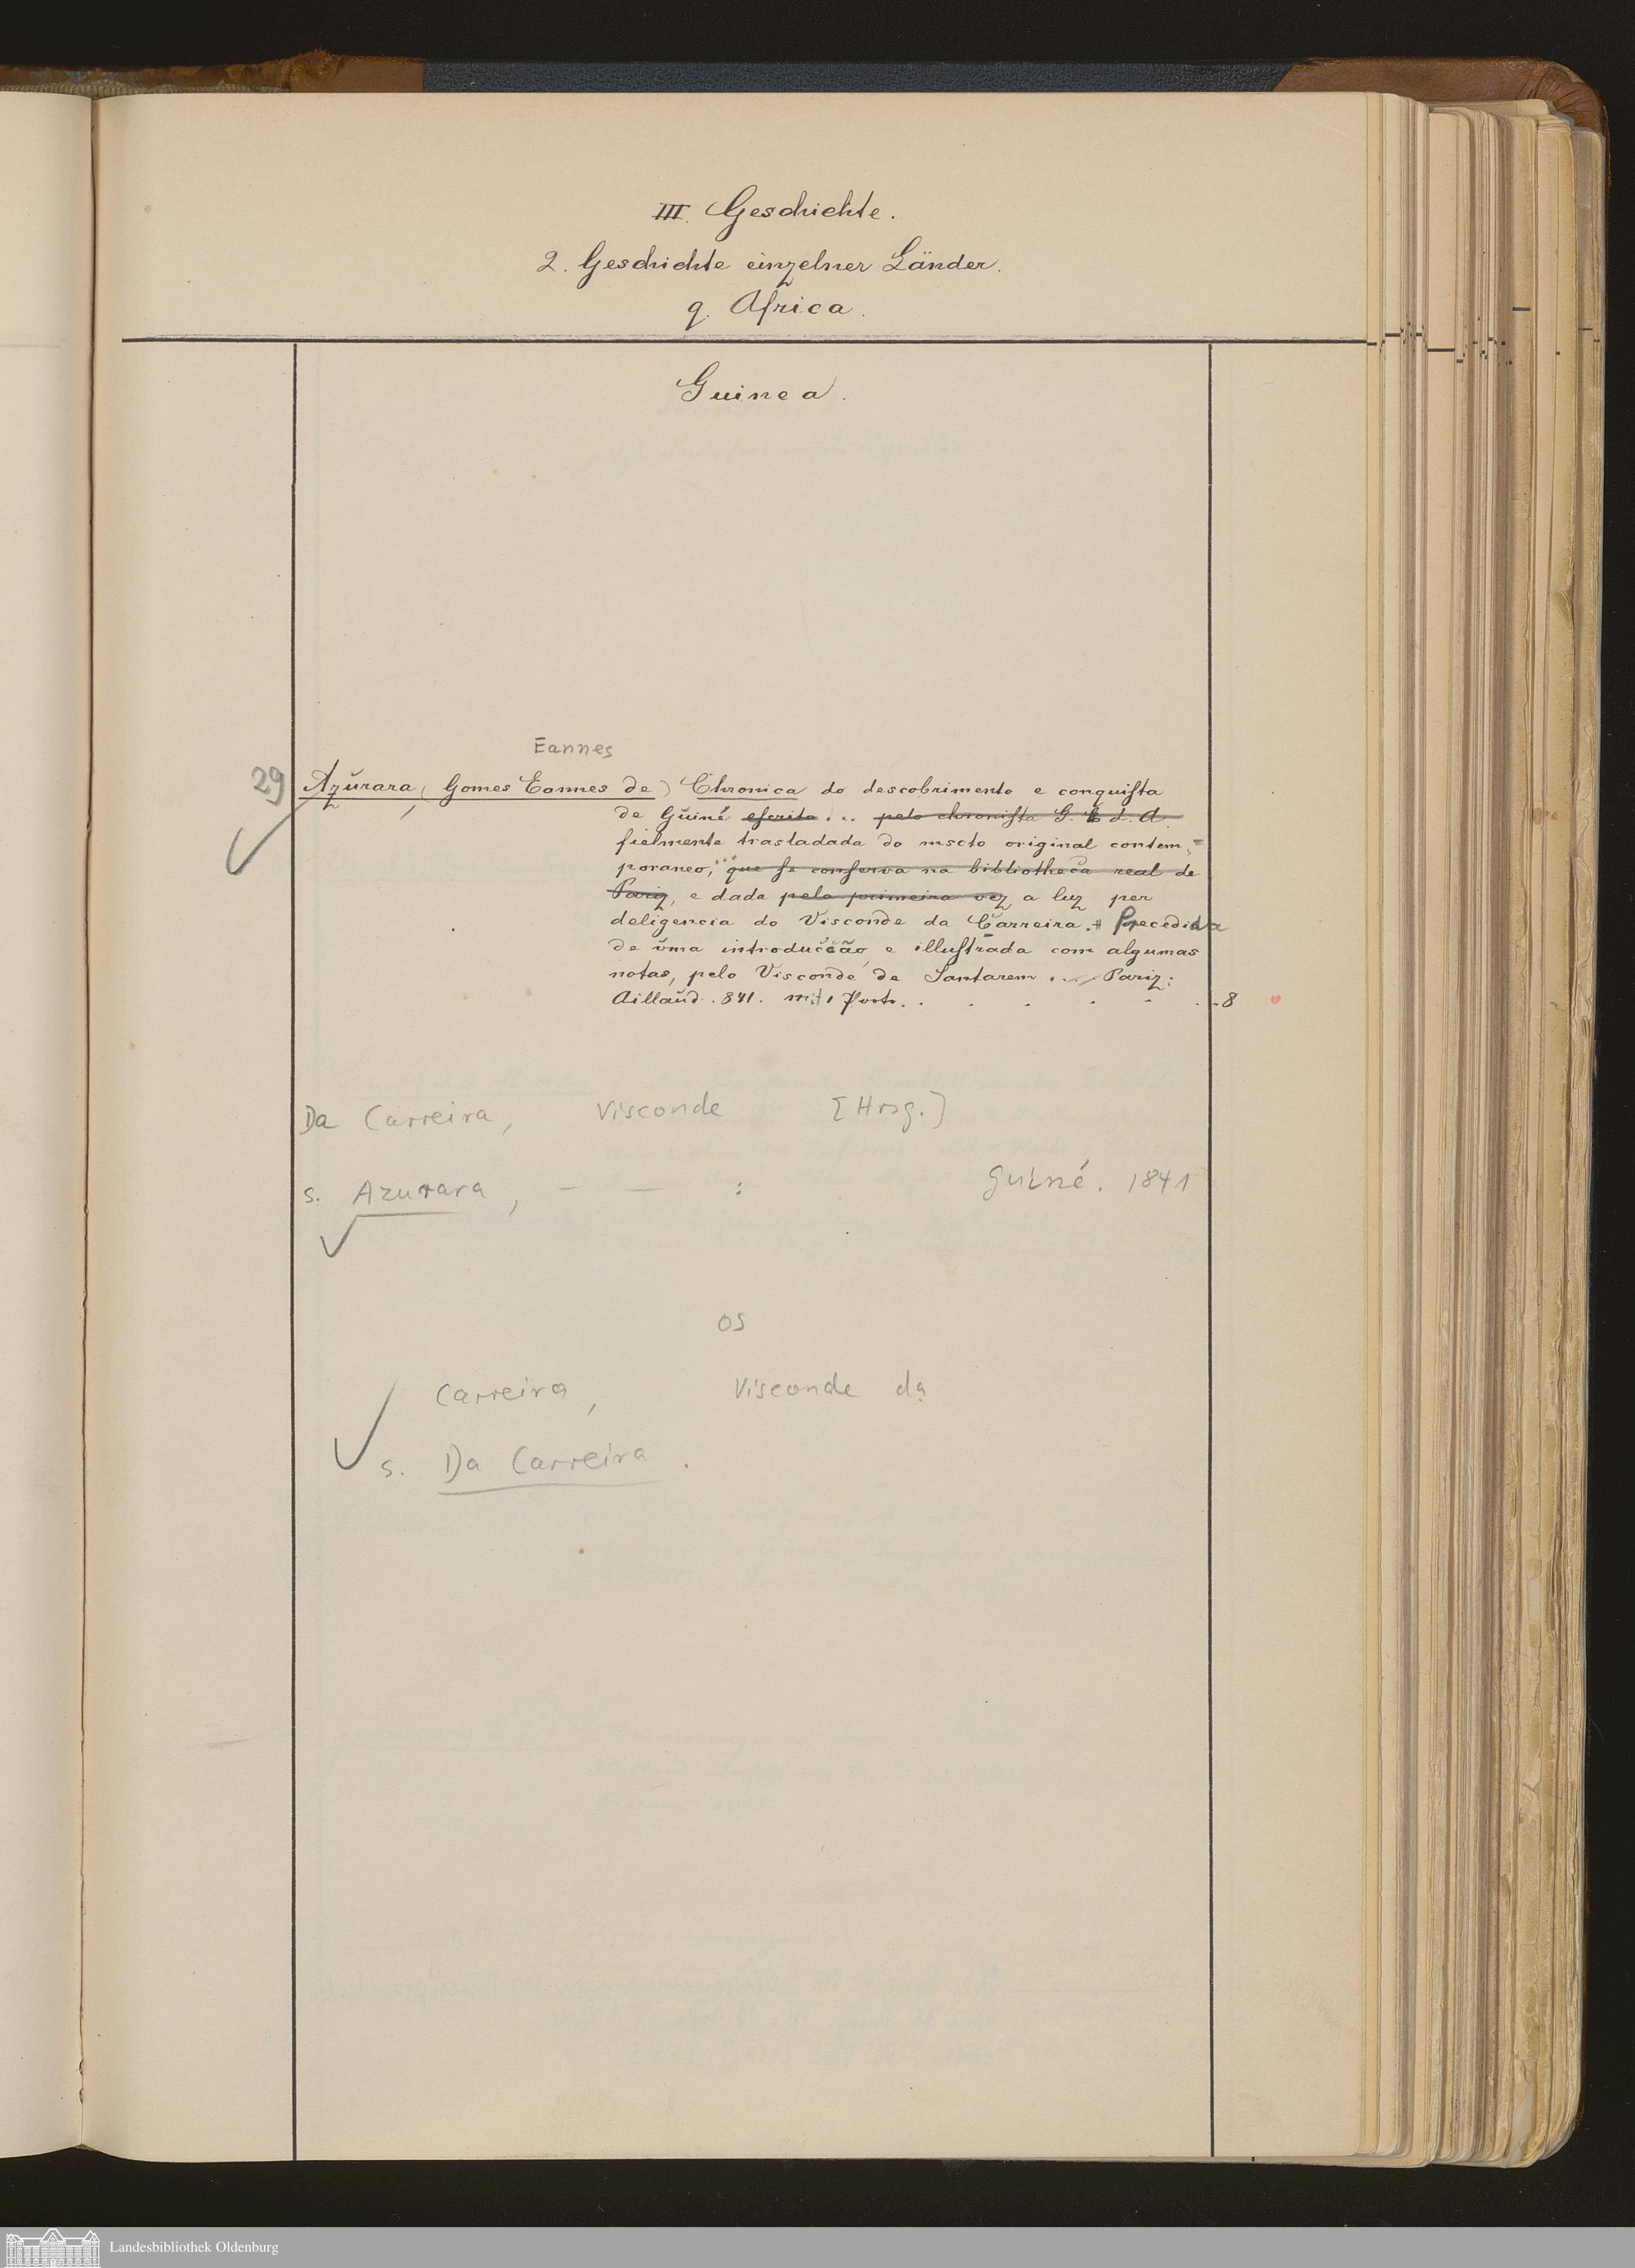 III. Geschichte.
2. Geschichte einzelner Länder.
q. Africa.
Guinea.
Eannes
29 Azurara, (Gomes Eannes de) Chronica do descobrimento e conquista
de Guiné escrita ... pelo chronista G. E. d. A.
fielmente trasladada do mscto original contem-
poraneo, ... que se conserva na bibliotheca real de
Pariz, e dada pela primeira vez a luz per
deligencia do Visconde da Carreira. + Precedida
de uma introducção, e illustrada com algumas
notas, pelo Visconde de Santarem ... Pariz:
Aillaud. 841. mit 1 Portr. . . . . . . 8
Da Carreira, Visconde [Hrsg.]
s. Azurara, — — : Guiné. 1841
OS
Carreira, Visconde da
s. Da Carreira.
Landesbibliothek Oldenburg